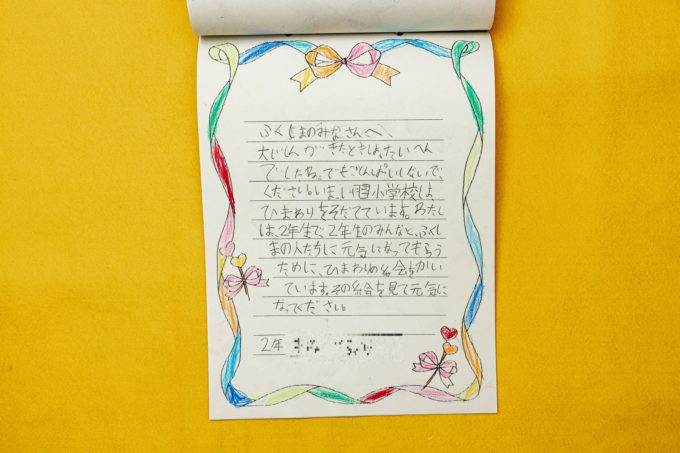 ふくしまのみなさんへ、
大じしんがきたときは、たいへん
でしたね。でもごしんぱいしないで、
ください。いま、習小学校は、
ひまわりをそだてています。わたし
は、2年生で、2年生のみんなと、ふくし
まの人たちに元気になってもらう
ために、ひまわりの絵をかい
ています。その絵を見て元気に
なってください。
2年